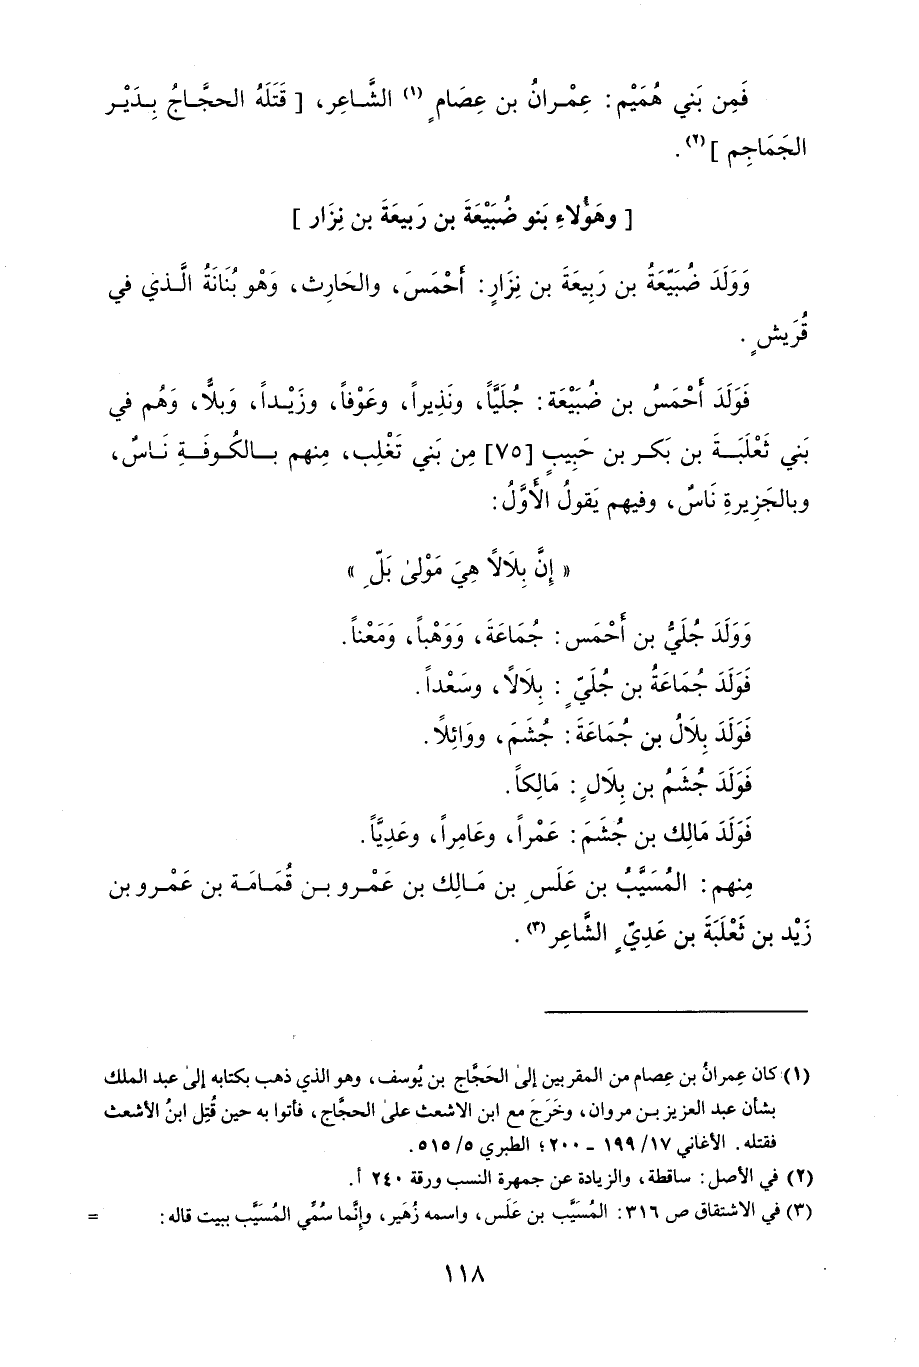 فَمِن بَني هُمَيْم: عِمْرانُ بن عِصَامٍ (١) الشَّاعِر، [ قَتَلَهُ الحجَّاجُ بِدَيْر
الجَمَاجِم ](٢).
[ وهَؤُلاءِ بَنو ضُبَيْعَةَ بن رَبيعَةَ بن نِزَار ]
وَوَلَدَ ضُبَيْعَةُ بن رَبِيعَةَ بن نِزَارٍ: أَحْمَسَ، والحَارِث، وَهْو بُنَانَةُ الَّذي في
قُرَيش ٍ.
فَوَلَدَ أَحْمَسُ بن ضُبَيْعَة: جُلَيًّا، ونَذِيراً، وعَوْفاً، وزَيْداً، وَبلًّا، وَهُم في
بَني ثَعْلَبَةَ بن بَكر بن حَبِيبٍ [٧٥] مِن بَني تَغْلِب، مِنهم بالكُوفَةِ نَاسٌ،
وبالجَزِيرةِ نَاسٌ، وفيهم يَقولُ الأَوَّلُ:
« إِنَّ بِلَالاً هِيَ مَوْلىٰ بَلّ ِ »
وَوَلَدَ جُلَيُّ بن أَحْمَس: جُمَاعَةَ، وَوَهْباً، وَمَعْناً.
فَوَلَدَ جُمَاعَةُ بن جُلَيّ ٍ: بِلَالاً، وسَعْداً.
فَوَلَدَ بِلَالُ بن جُمَاعَةَ: جُشَمَ، ووَائِلاً.
فَوَلَدَ جُشَمُ بن بِلَال ٍ: مَالِكاً.
فَوَلَدَ مَالِك بن جُشَمَ: عَمْراً، وعَامِراً، وعَدِيَّاً.
مِنهم: المُسَيَّبُ بن عَلَس ِ بن مَالِك بن عَمْرو بن قُمَامَة بن عَمْرو بن
زَيْد بن ثَعْلَبَةَ بن عَدِيّ ٍ الشَّاعِر(٣).
(١) كان عِمرانُ بن عِصام من المقربين إلىٰ الحَجَّاج بن يُوسف، وهو الذي ذهب بكتابه إلىٰ عبد الملك
بشأن عبد العزيز بن مروان، وخَرَجَ مع ابن الاشعث علىٰ الحجَّاج، فأتوا به حين قُتِل ابنُ الأشعث
فقتله. الأغاني ١٧/ ١٩٩ - ٢٠٠؛ الطبري ٥/ ٥١٥.
(٢) في الأصل: ساقطة، والزيادة عن جمهرة النسب ورقة ٢٤٠ أ.
(٣) في الاشتقاق ص ٣١٦: المُسَيَّب بن عَلَس، واسمه زُهَير، وإنَّما سُمِّي المُسَيَّب ببيت قاله: =
١١٨